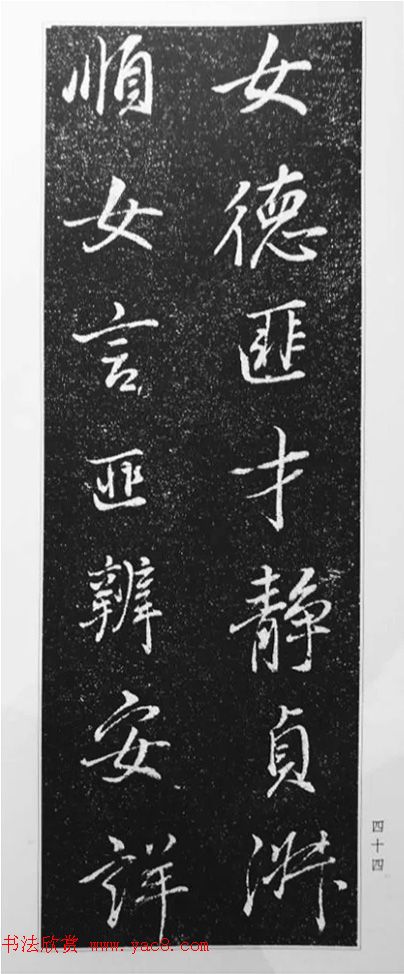 女德匪才静貞淑
順女言匪辨安詳
四十四
书法欣赏 www.yac8.com